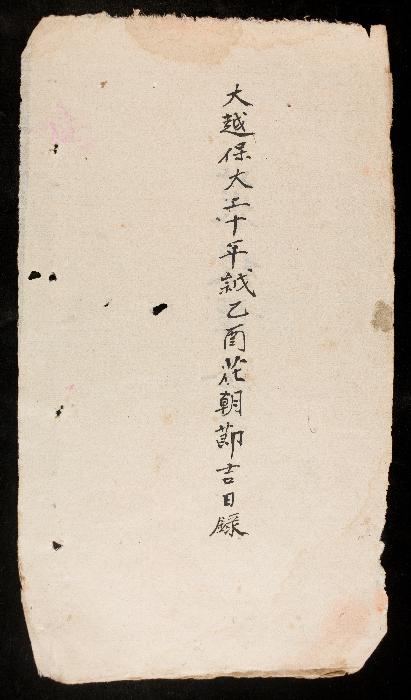 大越保大二十年越乙酉花朝節吉日錄